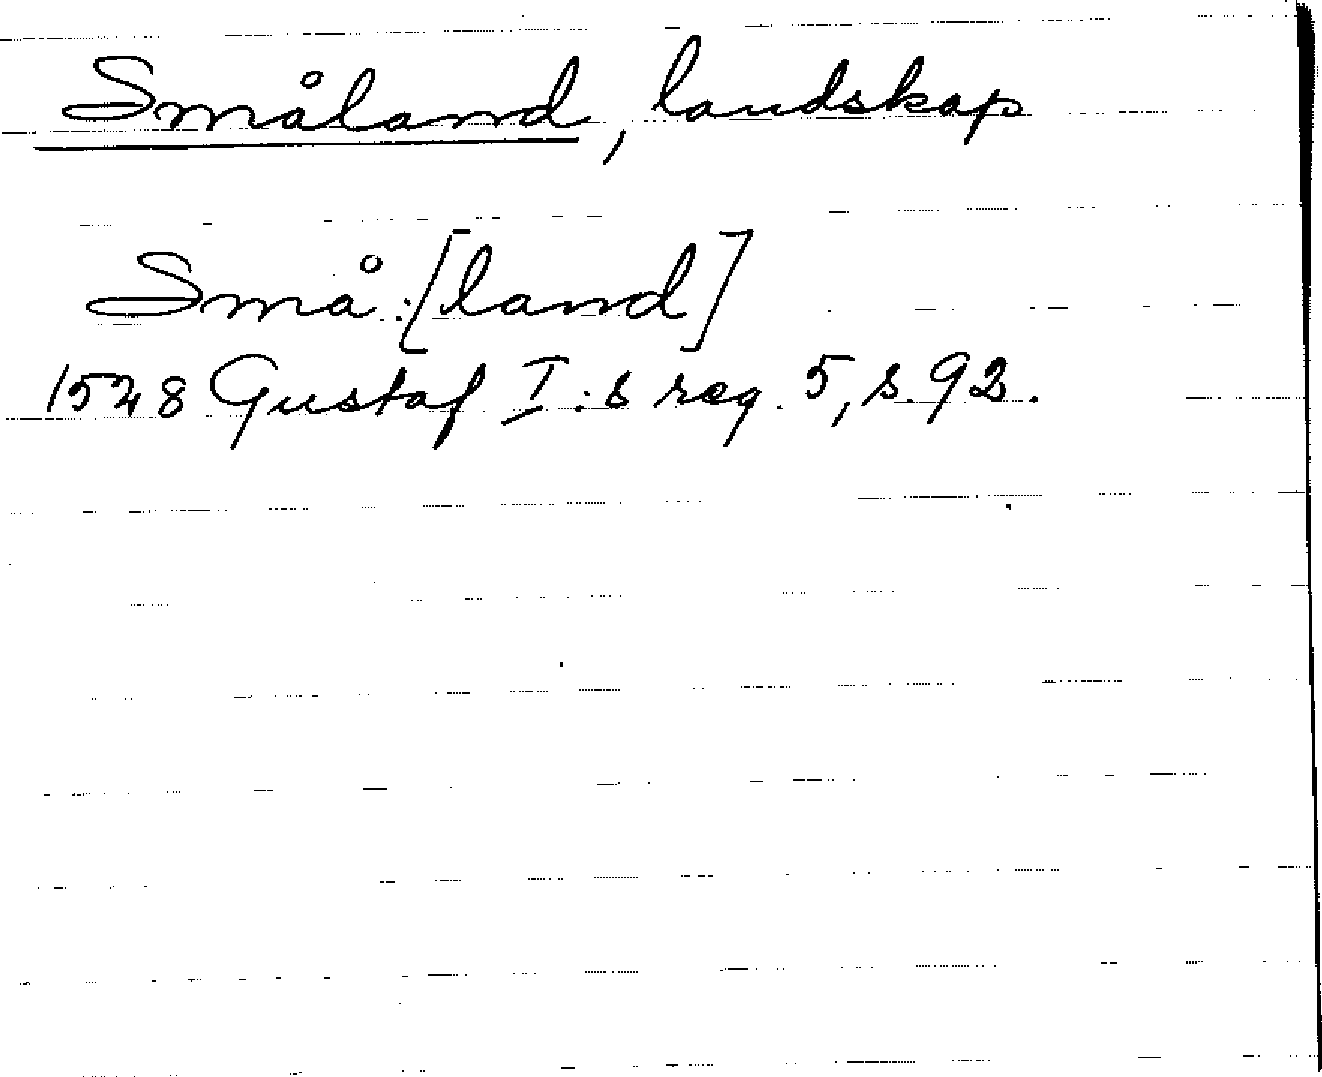 Småland, landskap
Små:[land]
1528 Gustaf I:s reg. 5, s. 92.